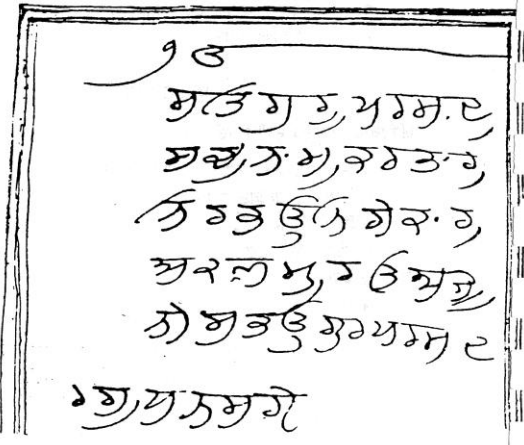 ੧ੳ
ਸਤਿਗੁਰੁ ਪਰਸਾਦੁ
ਸਚੁ ਨਾਮੁ ਕਰਤਾਰੁ
ਨਿਰਭਉ ਨਿਰੀਕਾਰੁ
ਅਕਲ ਮੁਰਤਿ ਅਜੁ
ਨੀ ਸਭਉ ਗੁਰਪਰਸਾਦ
ਰਗੁ ਧਨਸਰੀ